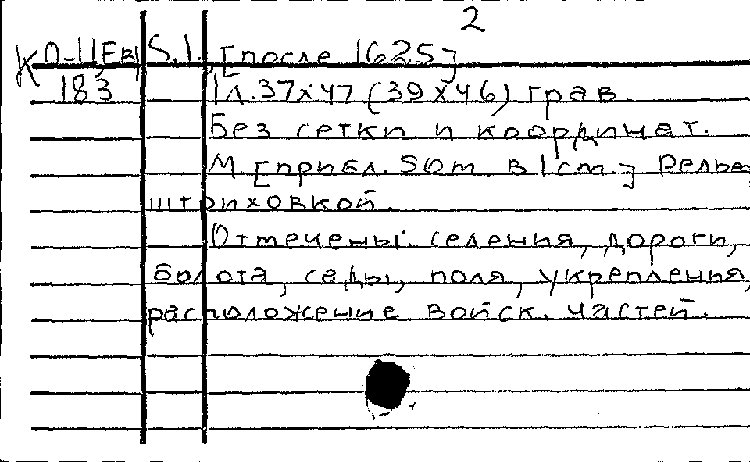 2
К О-11Ев S.l., [после 1625]
183 1 л. 37х47 (39х46) грав
Без сетки и координат.
М [прибл. 50m. в 1 cm.] Релье
штриховкой.
Отмечены: селения, дороги,
болота, сады, поля, укрепления,
расположение войск. частей.